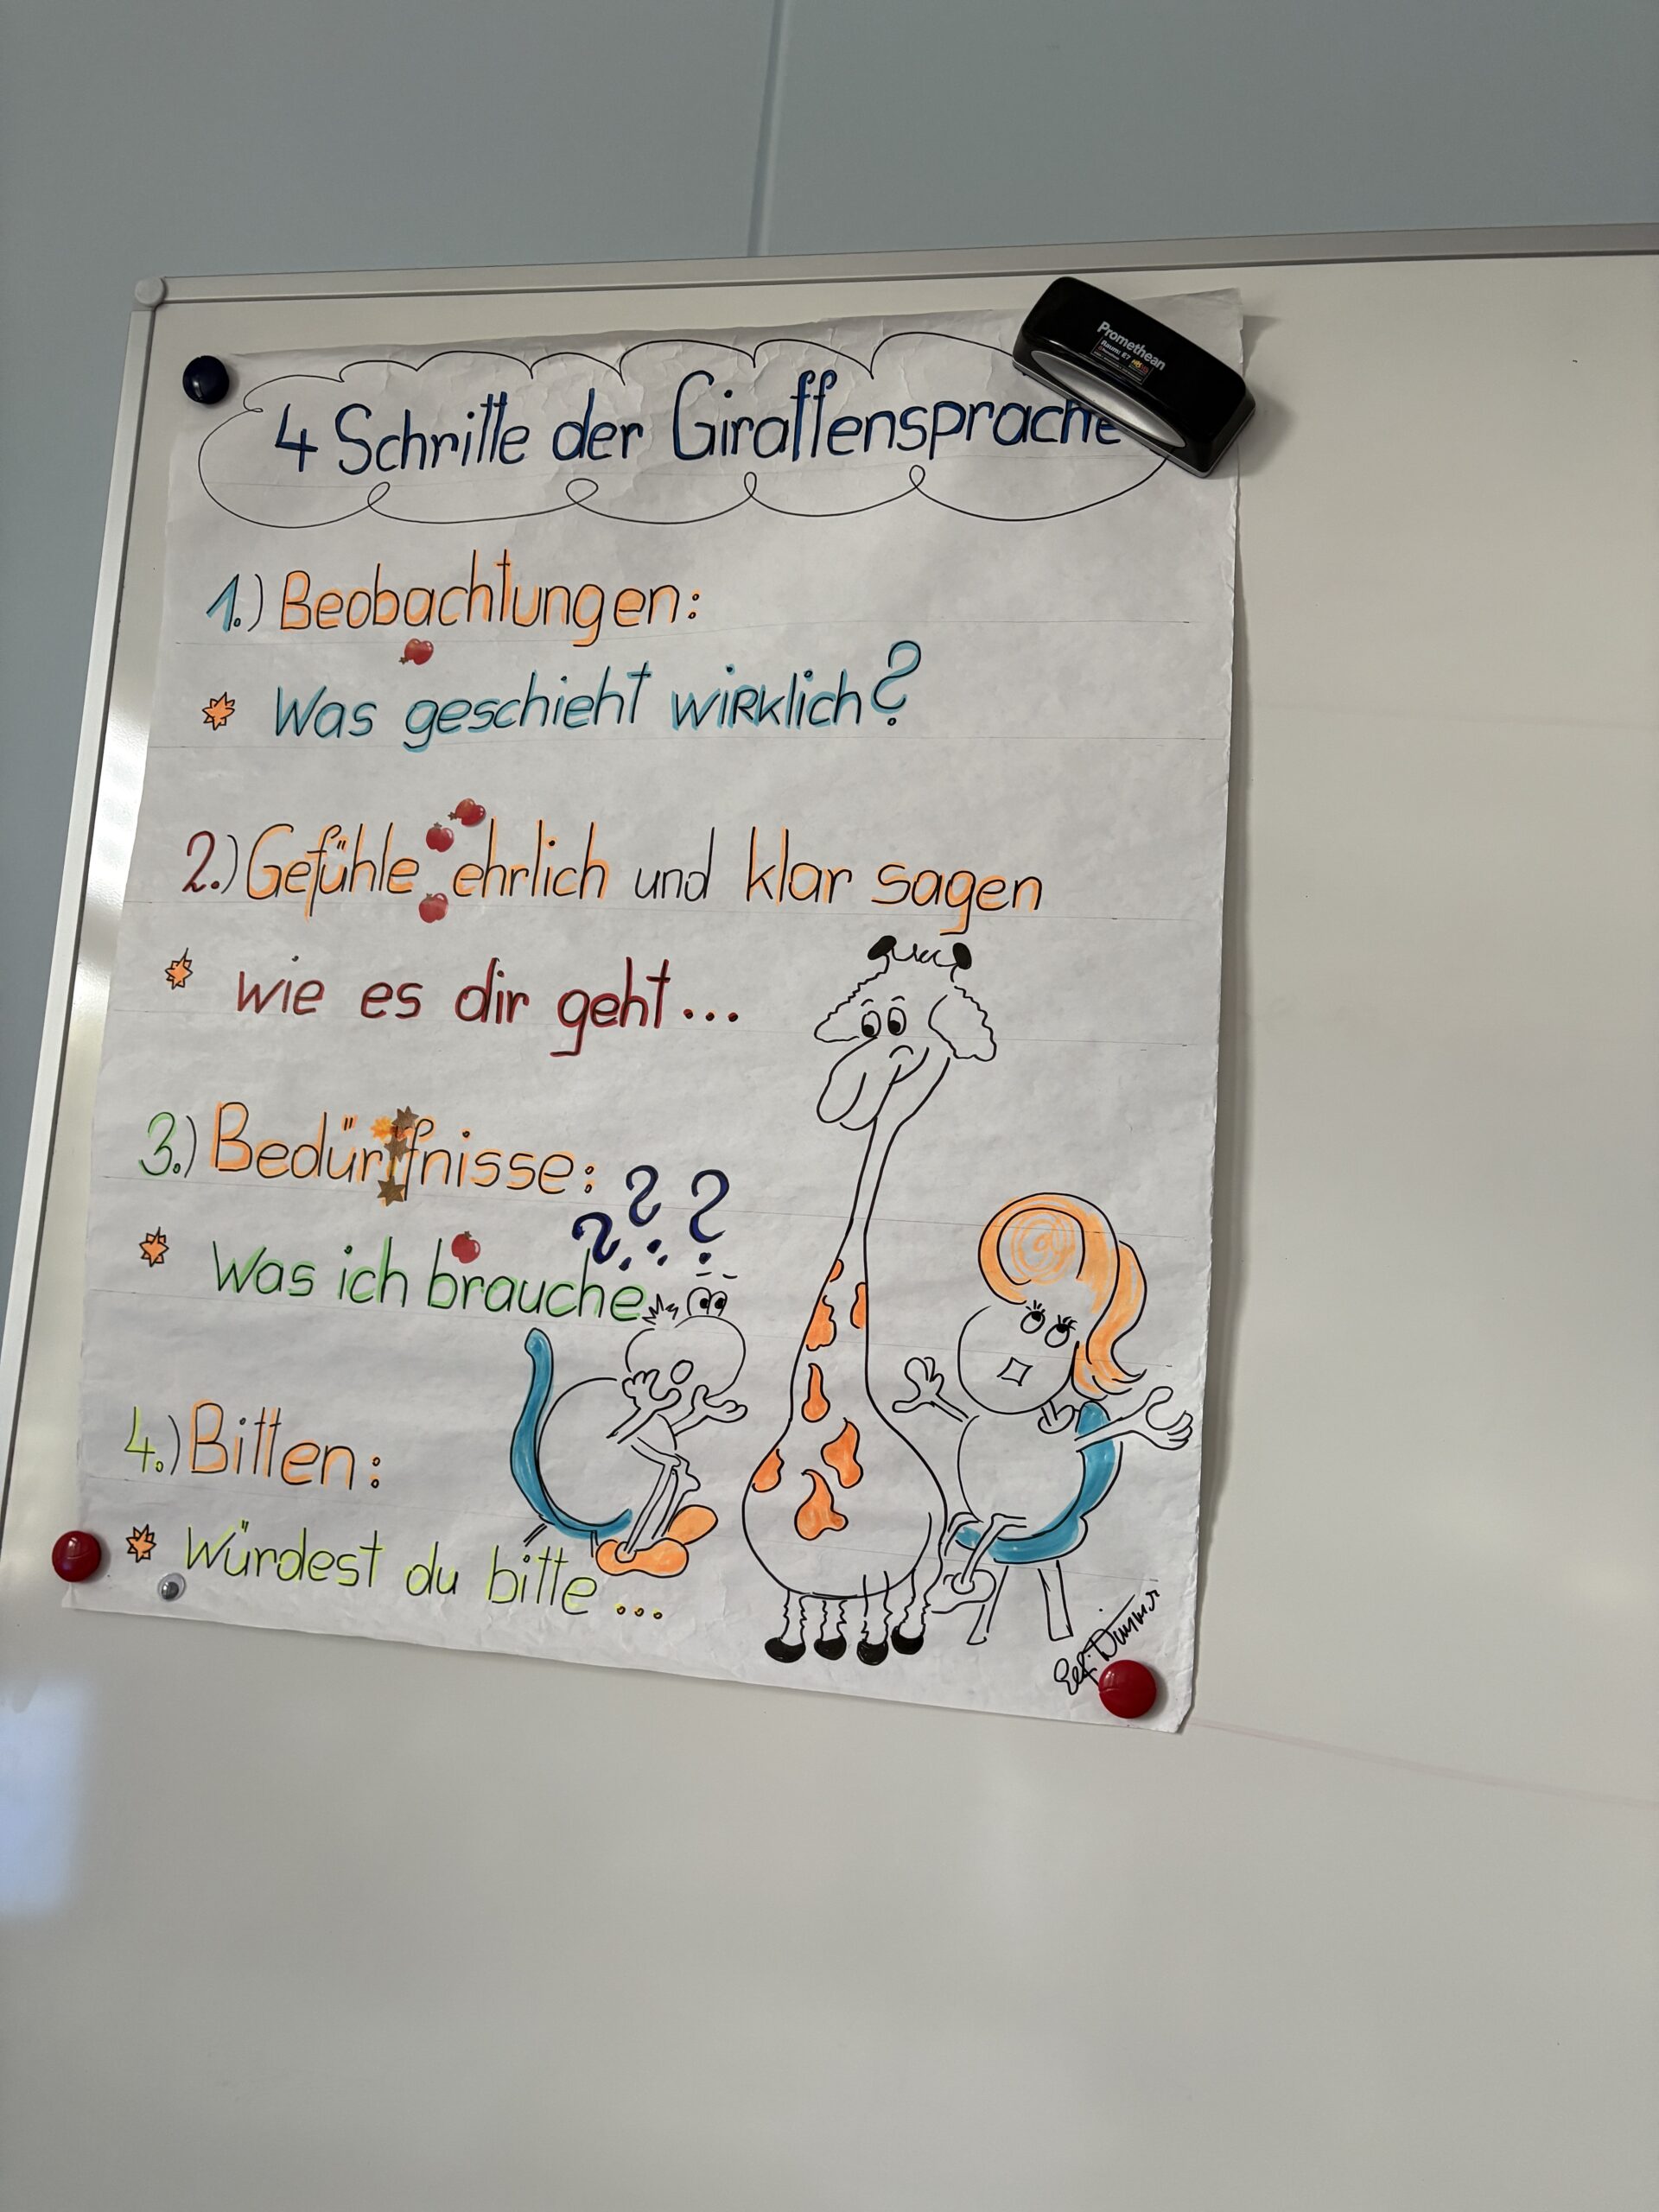 4 Schritte der Giraffensprache
1.) Beobachtungen:
Was geschieht wirklich?
2.) Gefühle ehrlich und klar sagen
wie es dir geht...
3.) Bedürfnisse:
? ? ?
Was ich brauche
4.) Bitten:
Würdest du bitte...
Promethean
Raum: E7